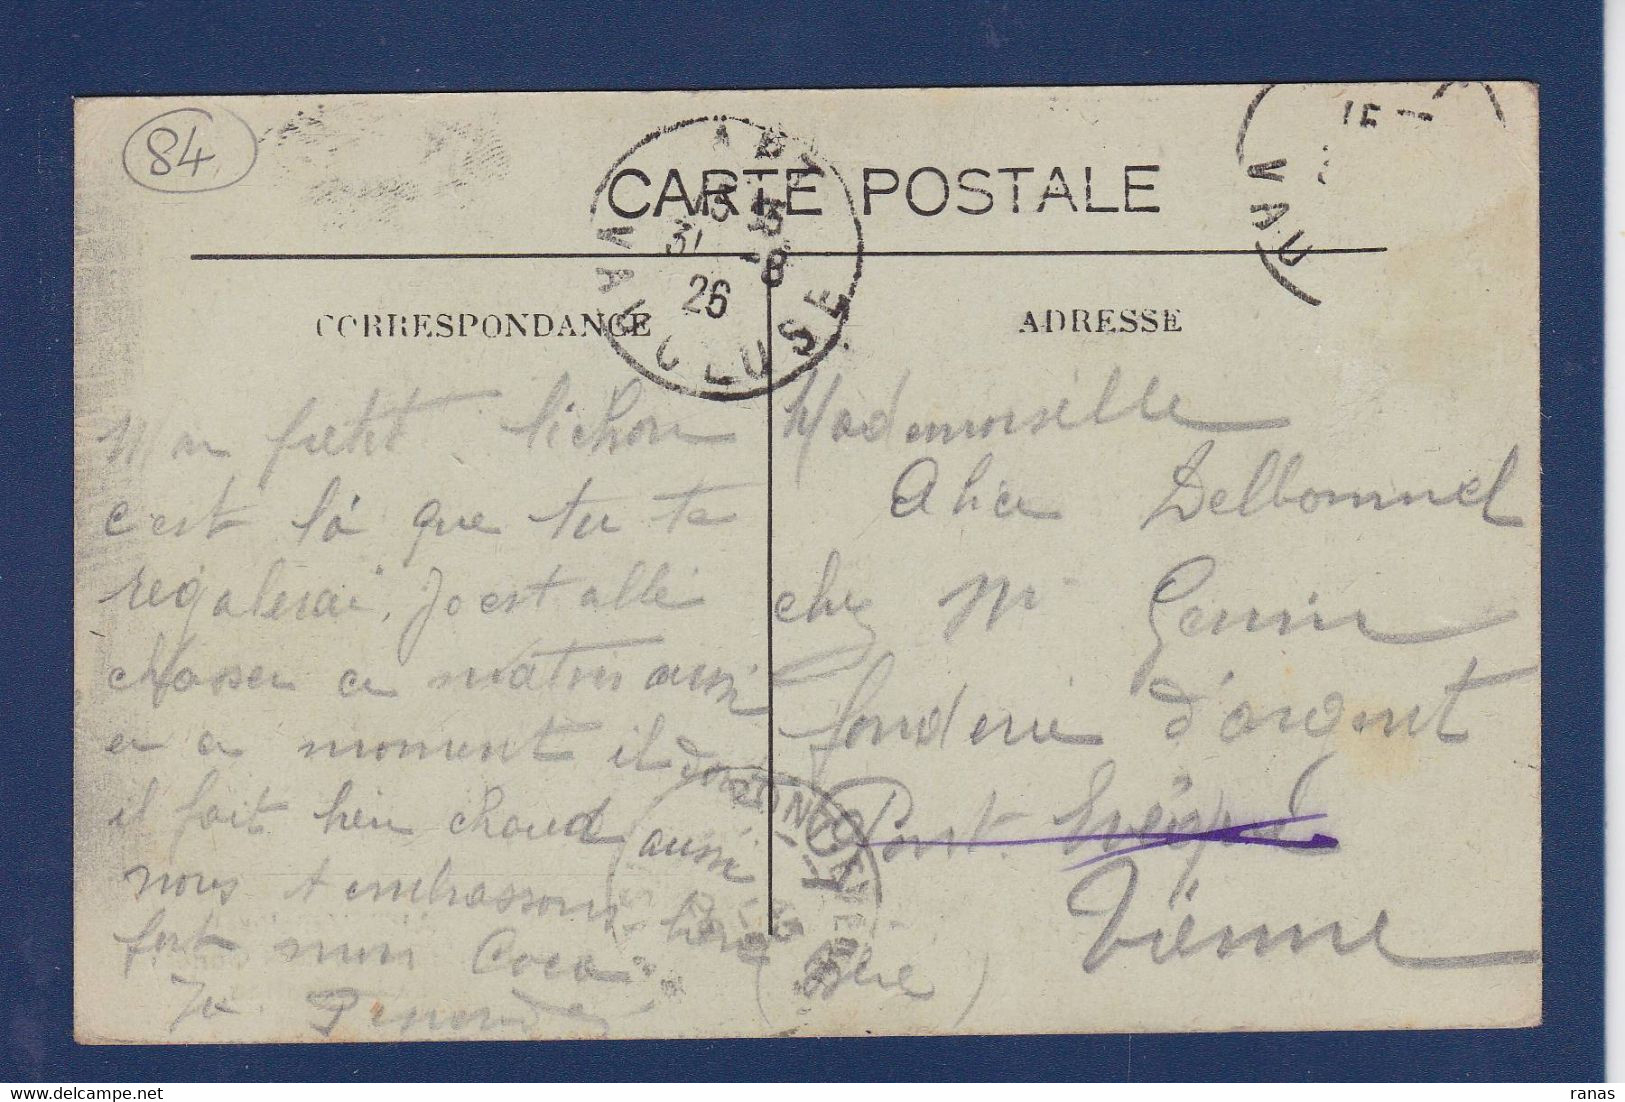 84
CARTE POSTALE
APT
15 5
31 -8
26
VAUCLUSE
15
VAU
CORRESPONDANCE
ADRESSE
Mon petit lichon
c'est là que tu te
regalerai. Jo est allé
chasser ce matin aussi
en ce moment il dort
il fait bien chaud aussi
nous t embrassons bien
fort mimi Coco
Jo
Mademoiselle
Alice Delbonnel
chez Mr Genin
fonderie d'argent
Pont. Evêque
Vienne
(Isère)
ranas